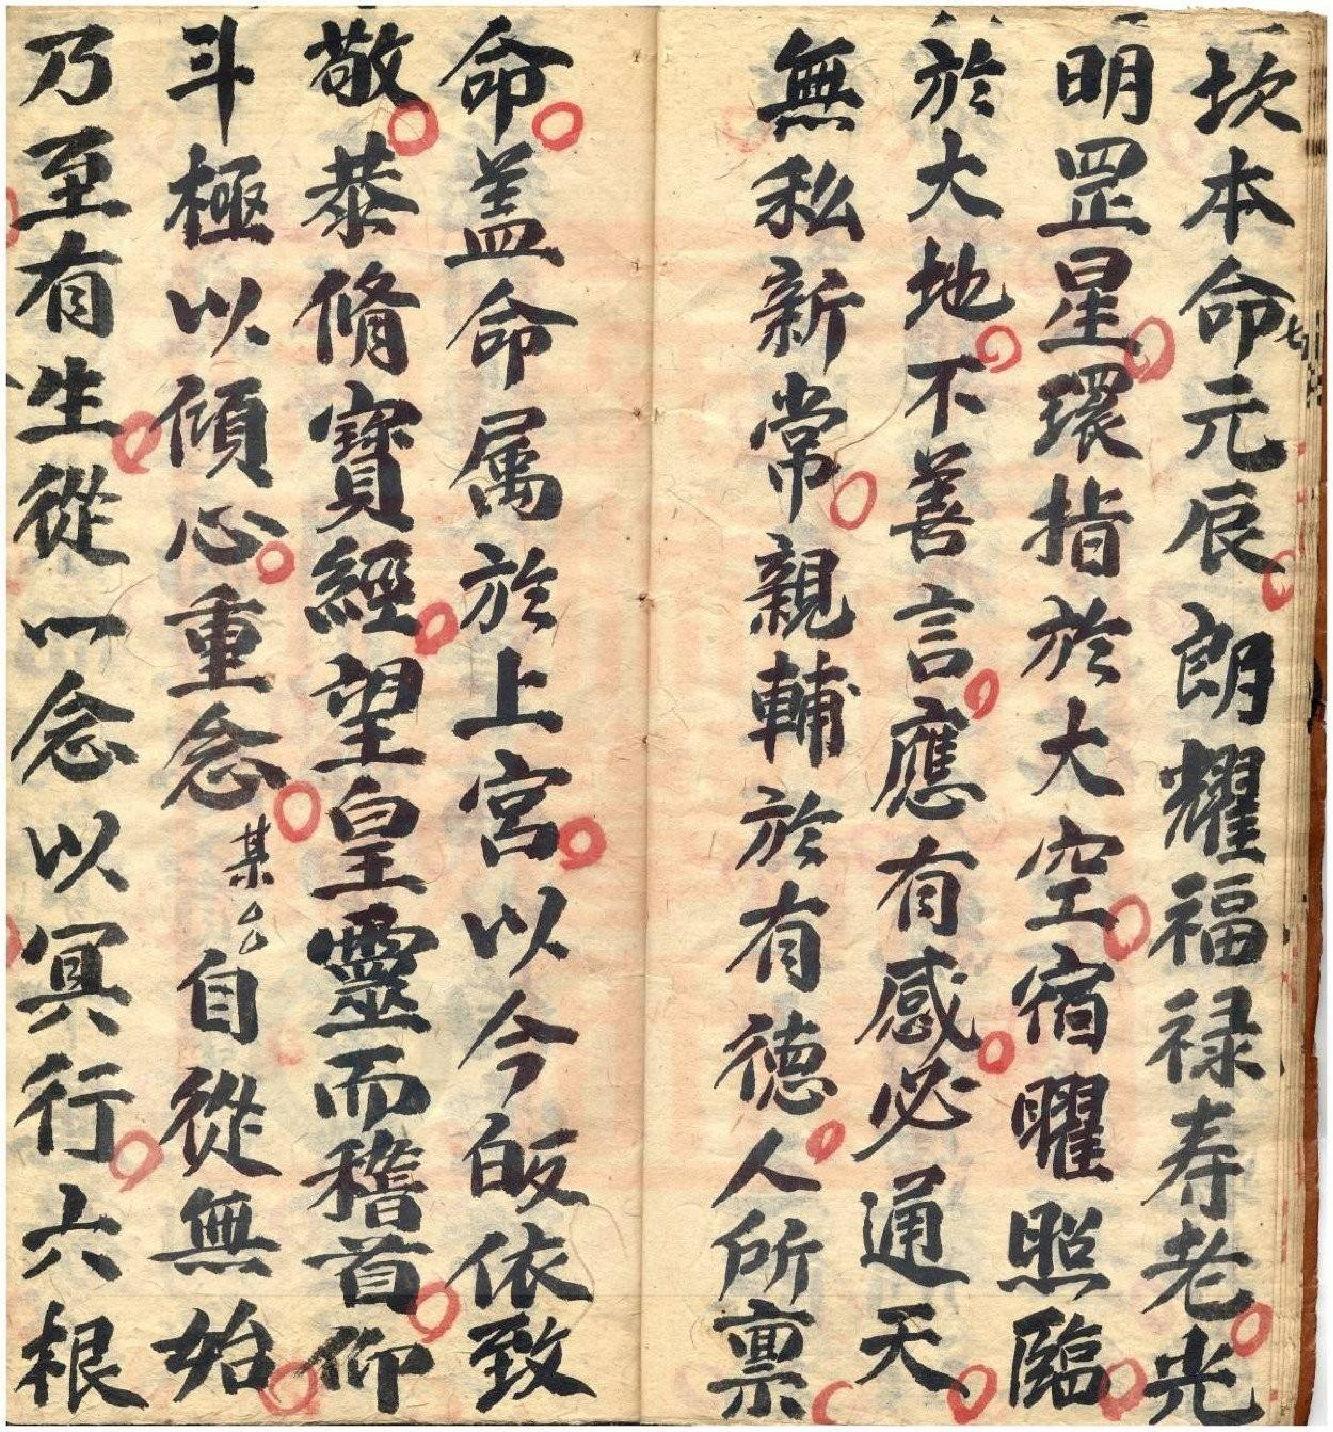 坎本命元辰朗耀福禄寿老光
明罡星環指於大空宿曜照臨
於大地不善言應有感必通天
無私新常親輔於有德人所禀
命盖命属於上宮以今皈依致
敬恭脩寳經望皇靈而稽首仰
斗極以傾心重念某厶自從無始
乃至有生從一念以冥行六根